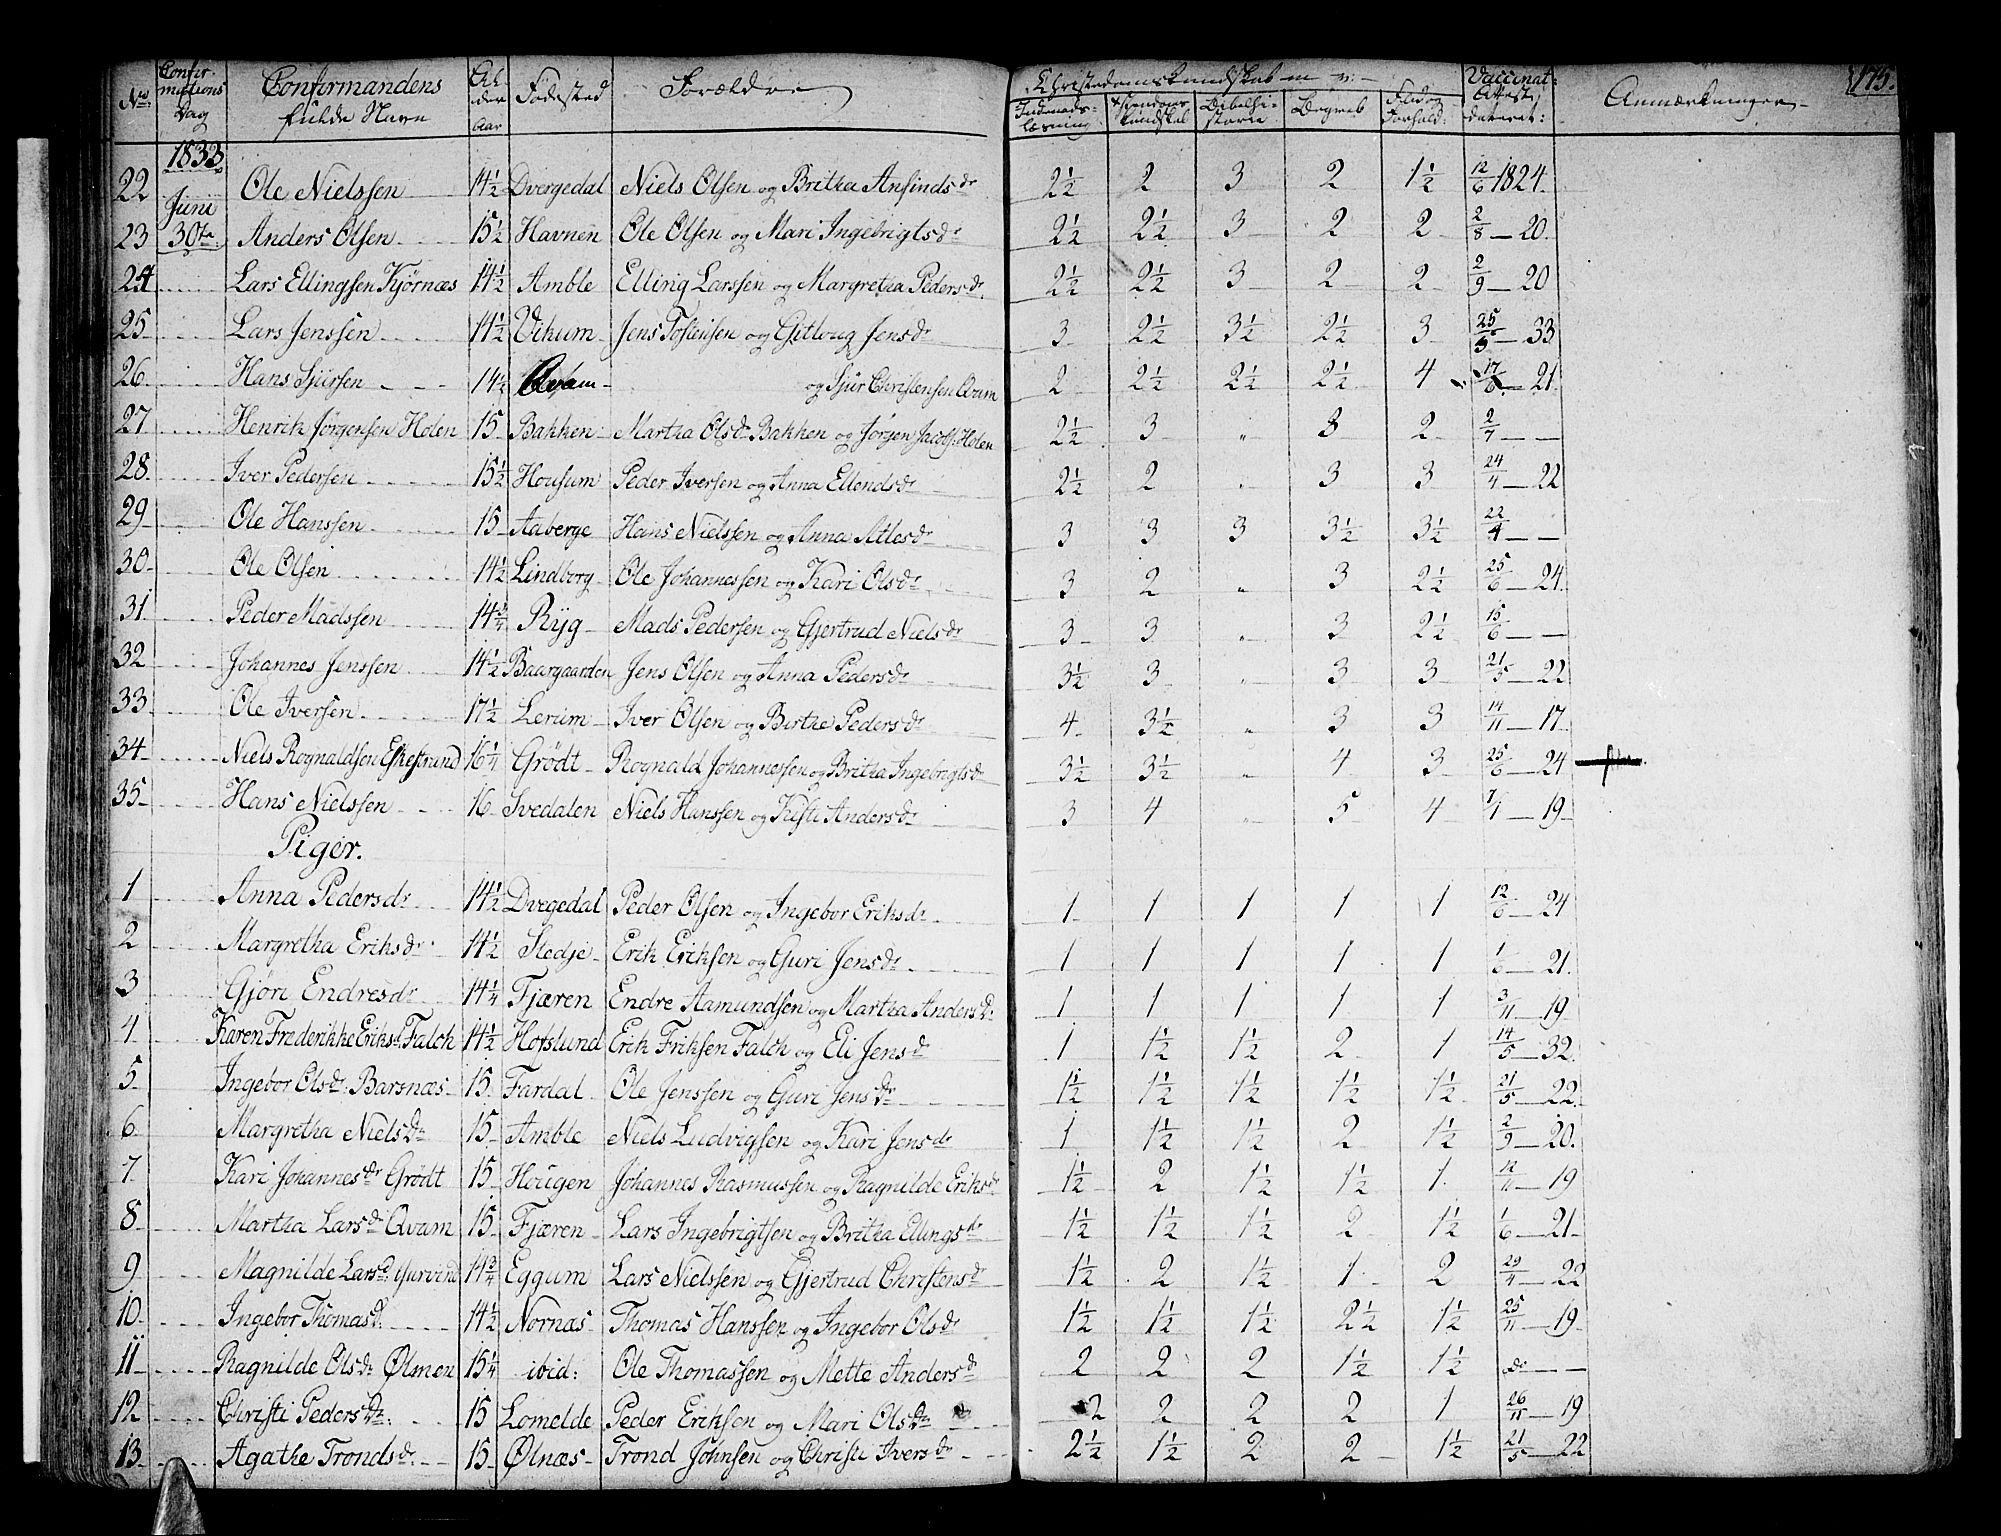 175.
No. Confirmations Dag Confirmandens fulde Navn Alder Aar Fødested Forældre Christendomskundskab m: v: Vaccinat: Attest, dateret: Anmærkninger
Indenads-læsning Christendoms kundskab Bibelhistorie Begreb Flid og Forhold:
1833
22 Juni Ole Nielssen 14½ Dvergedal Niels Olsen og Britha Anfindsdr 2½ 2 3 2 1½ 12/6 1824.
23 30te Anders Olsen 15½ Havnen Ole Olsen og Mari Ingebrigtsdr 2½ 2½ 3 2 2 2/8 — 20.
24 Lars Ellingsen Kjørnæs 14½ Amble Elling Larssen og Margretha Pedersdr. 2½ 2½ 3 2 2 2/9 — 20
25 Lars Jenssen 14½ Vikum Jens Tostensen og Gitloug Jensdr 3 2½ 3½ 2½ 3 25/5 — 33
26. Hans Sjúrsen 14½ Qvam og Sjur Christensen Qvam 2 2½ 2½ 2½ 4 17/6 — 21.
27 Henrik Jørgensen Holen 15 Bakken Martha Olsdr Bakken og Jørgen Jacobs. Holen 2½ 3 „ 3 2 2/7 — —
28. Iver Pedersen 15½ Housum Peder Iversen og Anna Ellendsdr 2½ 2 „ 3 3 24/4 — 22
29 Ole Hanssen 15 Aaberge Hans Nielssen og Anna Atlesdr 3 3 3 3½ 3½ 22/4 — —
30. Ole Olsen 14½ Lindborg Ole Johannessen og Kari Olsdr. 3 2 „ 3 2½ 25/6 — 24.
31. Peder Madssen 14¾ Ryg Mads Pedersen og Gjertrud Nielsdr 3 3 „ 3 2½ 15/6 — —
32 Johannes Jenssen 14½ Baargaarden Jens Olsen og Anna Pedersdr 3½ 3 „ 3 3 21/5 — 22
33 Ole Iversen 17½ Lerum Iver Olsen og Birthe Pedersdr 4 3½ „ 3 3 14/11 — 17.
34 Niels Rognaldsen Eskestrand 16¼ Grødt Rognald Johannessen og Britha Ingebrigtsdr 3½ 3½ „ 4 3 25/6 — 24
35 Hans Nielssen 16 Svedalen Niels Hanssen og Kisti Andersdr 3 4 „ 5 4 7/1 — 19
Piger.
1 Anna Pedersdr 14½ Dvegedal Peder Olsen og Ingebor Eriksdr 1 1 1 1 1 12/6 — 24
2 Margretha Eriksdr 14½ Stedje Erik Eriksen og Guri Jensdr. 1 1 1 1 1 1/6 — 21.
3 Gjøri Endresdr 14¼ Fjæren Endre Aamundsen og Martha Andersdr 1 1 1 1 1 3/11 — 19
4 Karen Frederikke Eriksd. Falch 14½ Hofslund Erik Eriksen Falch og Eli Jensdr 1 1½ 1½ 2 1 14/5 — 32.
5 Ingebor Olsdr. Barsnæs 15. Fardal Ole Jenssen og Guri Jensdr 1½ 1½ 1½ 1½ 1½ 21/5 — 22.
6. Margretha Nielsdr 15 Amble Niels Ludvigssen og Kari Jensdr 1 1½ 1½ 2 1½ 2/9 — 20.
7. Kari Johannesdr Grødt 15 Hougen Johannes Rasmussen og Ragnilde Eriksdr 1½ 2 1½ 1½ 1. 12/11 — 19
8 Martha Larsdr Qvam 15 Fjæren Lars Ingebrigtsen og Britha Ellingsdr 1½ 1½ 1½ 2 1½ 1/6 — 21
9 Magnilde Larsd. 14¾ Eggum Lars Nielssen og Gjertrud Christensdr 1½ 2 1½ 1 2 29/4 — 22
10. Ingebor Thomasd. 14½ Nornæs Thomas Hanssen og Ingebor Olsdr 1½ 1½ 1½ 2½ 1½ 25/11 — 19
11 Ragnilde Olsdr Ølmen 15¼ ibid: Ole Thomassen og Mette Andersdr 2 2 2 1½ 1½ do — —
12 Christi Pedersdr. 15 Lomelde Peder Eriksen og Mari Olsdr 2 2 2 2 1 26/11 — 19
13. Agathe Trondsdr. 15 Ølnæs Trond Johnsen og Christi Iversdr 2½ 1½ 2 2 1½ 21/5 — 22